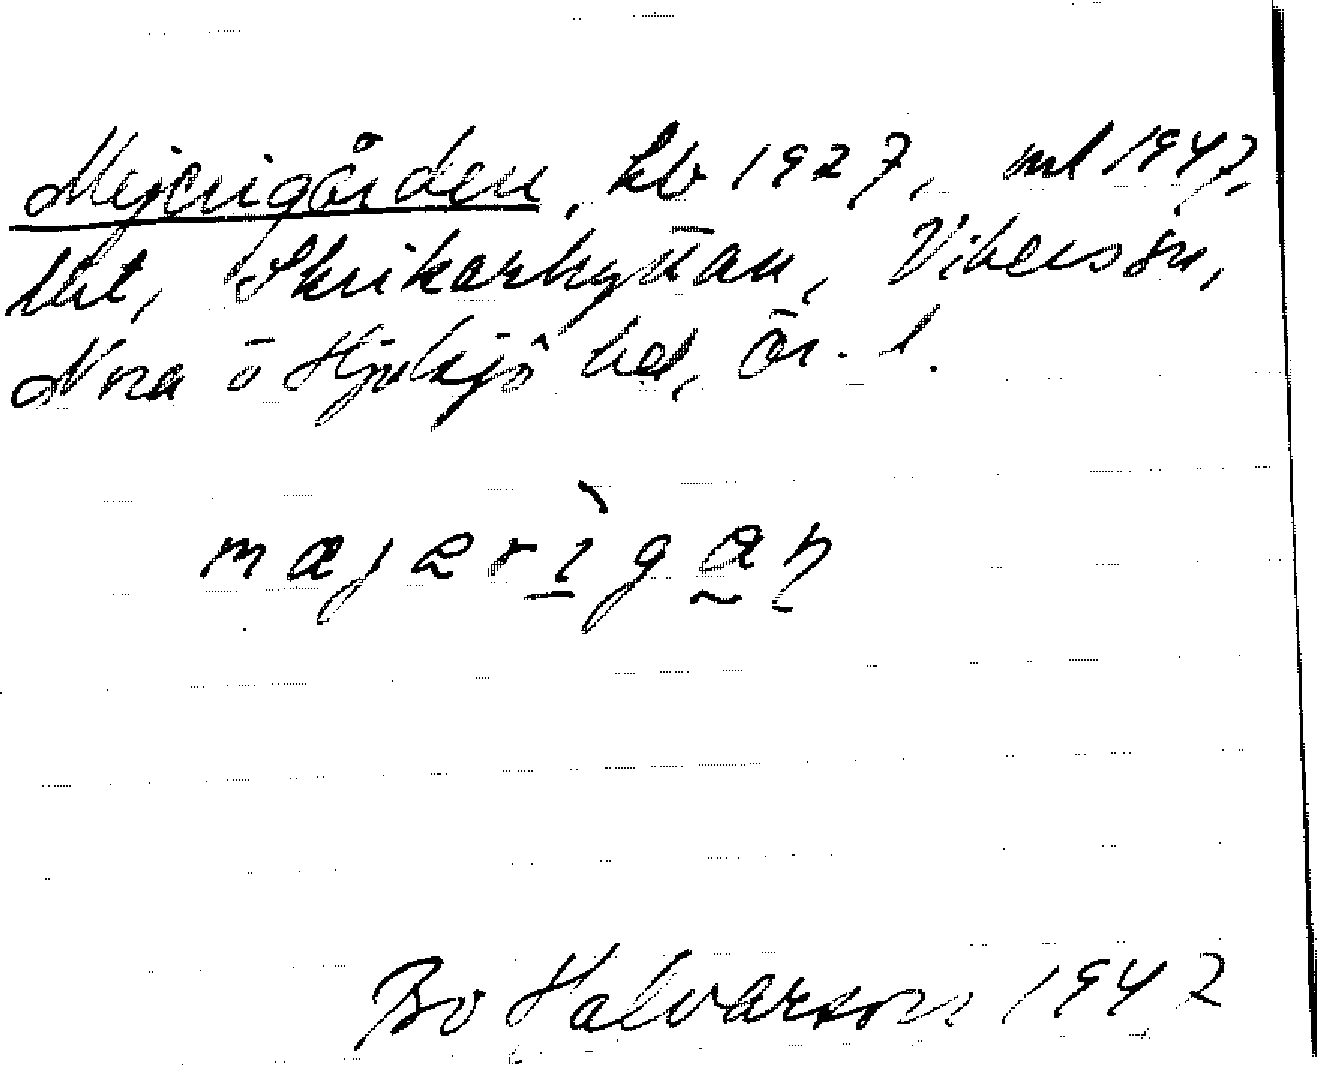 Mejerigården, kb 1927, ml 1947,
lht, Skrikarhyttan, Vikersvn,
Nora o Hjulsjö hd, Ör. l.
mæjerìgan
Bo Halvarson 1947